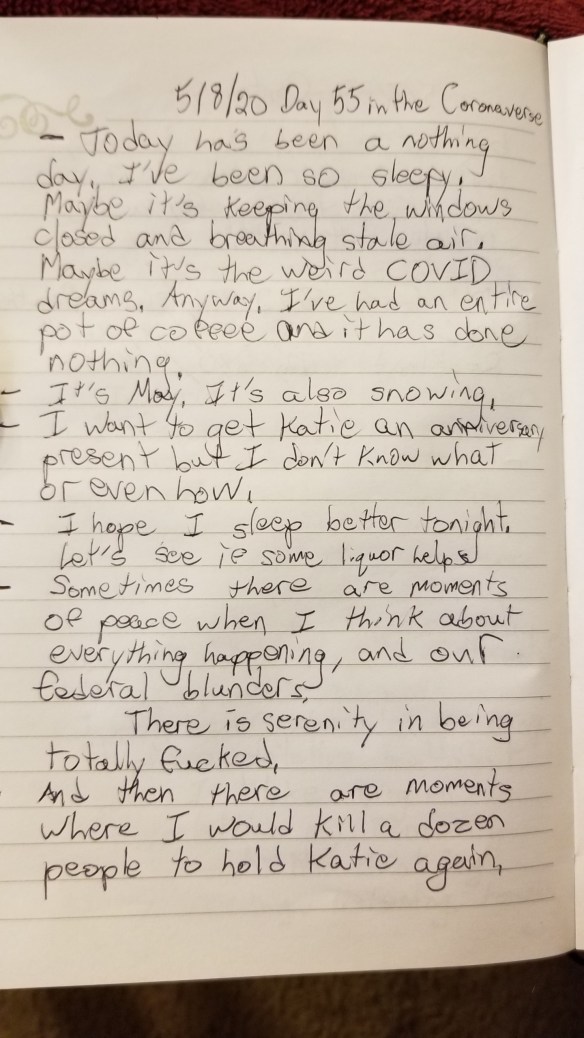 5/8/20 Day 55 in the Coronaverse
- Today has been a nothing
day. I've been so sleepy.
Maybe it's keeping the windows
closed and breathing stale air.
Maybe it's the weird COVID
dreams. Anyway, I've had an entire
pot of coffee and it has done
nothing.
- It's May. It's also snowing.
- I want to get Katie an anniversary
present but I don't know what
or even how.
- I hope I sleep better tonight.
Let's see if some liquor helps
- Sometimes there are moments
of peace when I think about
everything happening, and our
federal blunders.
There is serenity in being
totally fucked.
- And then there are moments
where I would kill a dozen
people to hold Katie again.